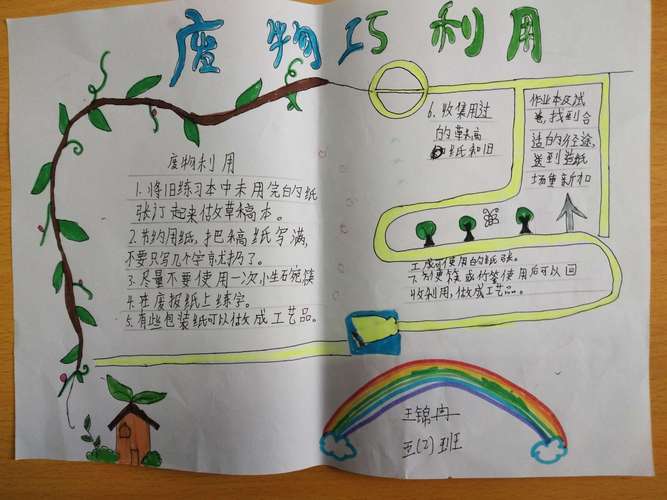 废物巧利用
废物利用
1.将旧练习本中未用完的纸
张订起来做草稿本。
2.节约用纸,把稿纸写满,
不要只写几个字就扔了。
3.尽量不要使用一次性碗筷
4.在废报纸上练字。
5.有些包装纸可以做成工艺品。
6.收集用过
的草稿
纸和旧
作业本及试
卷,找到合
适的途径,
送到造纸
场重新加
工成可使用的纸张。
7.方便筷或竹签使用后可以回
收利用,做成工艺品。
王锦冉
五(2)班